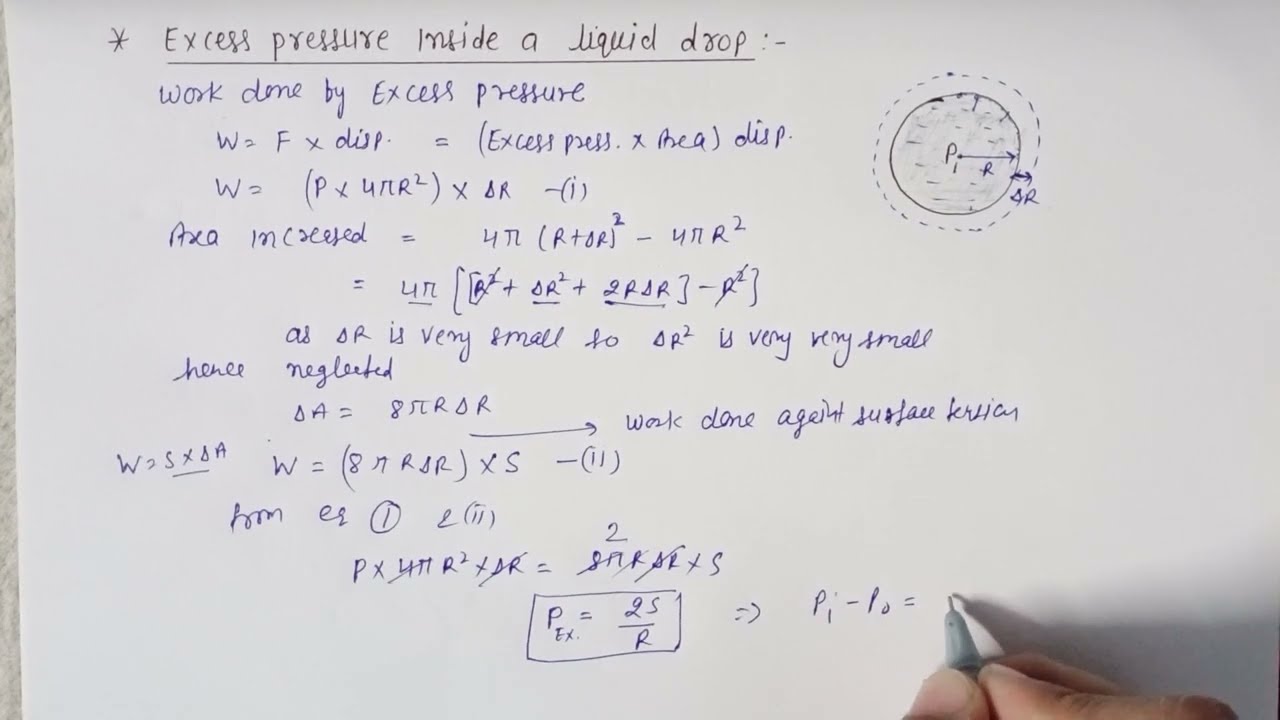 * Excess pressure inside a liquid drop :-
work done by Excess pressure
W = F × disp. = (Excess press. × Area) disp.
W = (P × 4πR²) × ΔR -(i)
Area increased = 4π (R+ΔR)² - 4πR²
= 4π [[R² + ΔR² + 2RΔR] - R²]
as ΔR is very small so ΔR² is very very small
hence neglected
ΔA = 8πRΔR
work done againt surface tension
W = S × ΔA W = (8πRΔR) × S -(ii)
from eq (1) & (ii)
P × 4πR² × ΔR = 8πRΔR × S
2
P Ex. = 2S/R ⇒ Pi - Po =
Pi
R
ΔR